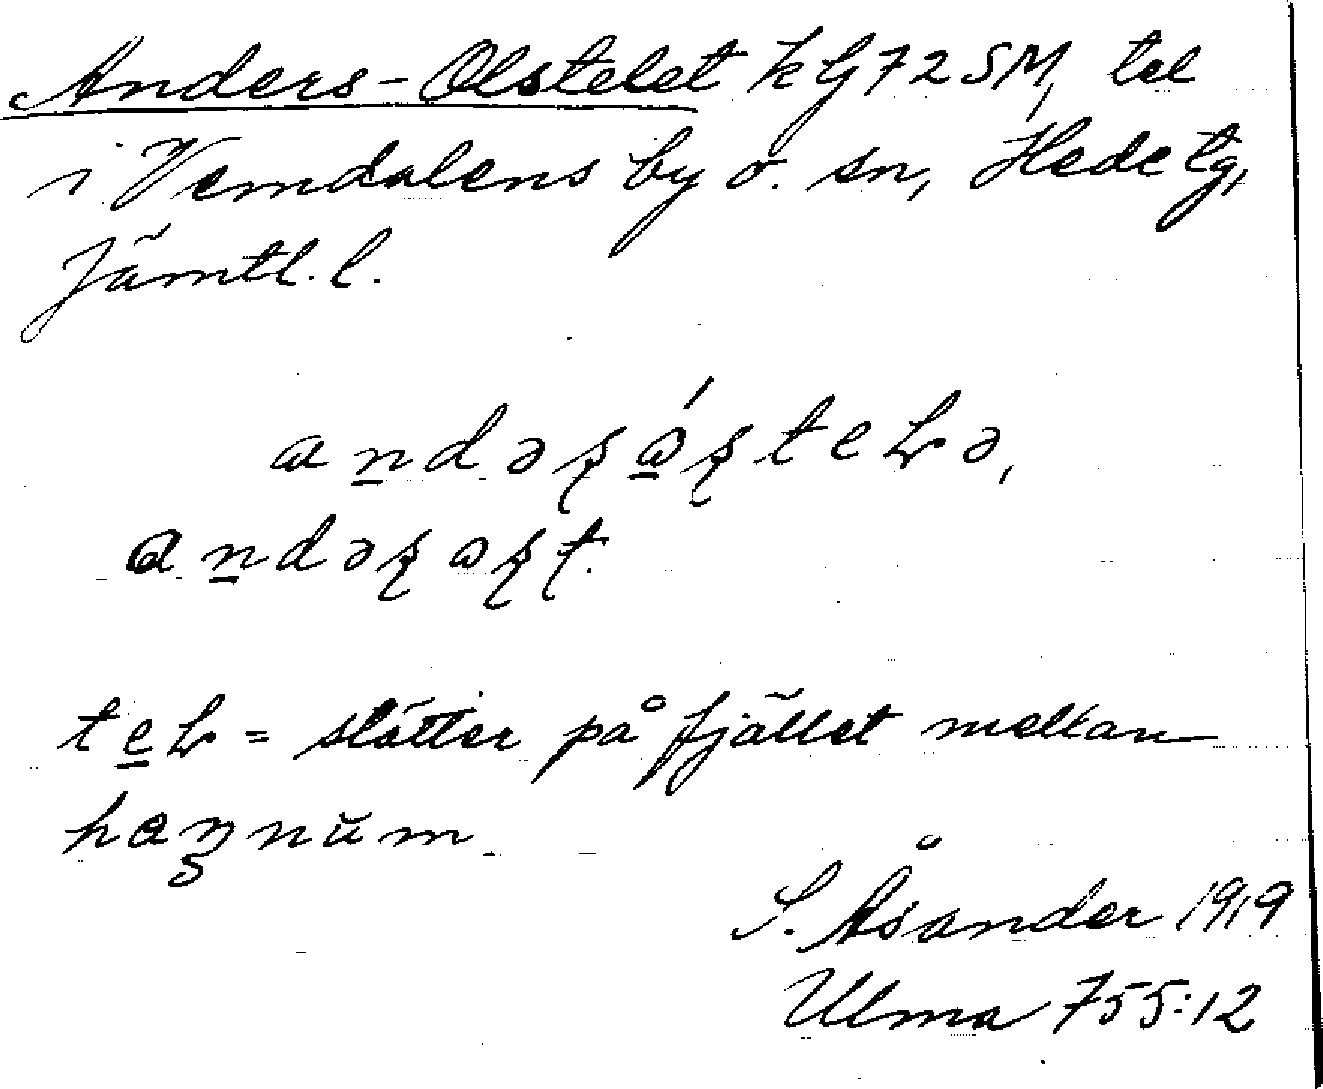 Anders-Olstelet hG72SM, tel
i Vemdalens by o. sn, Hede tg,
Jämtl. l.
andəʂɷ́ʂteɽə,
andəʂɷʂt.
teɽ = slåtter på fjället mellan
haŋnŭm
S. Åsander 1919
Ulma 755:12